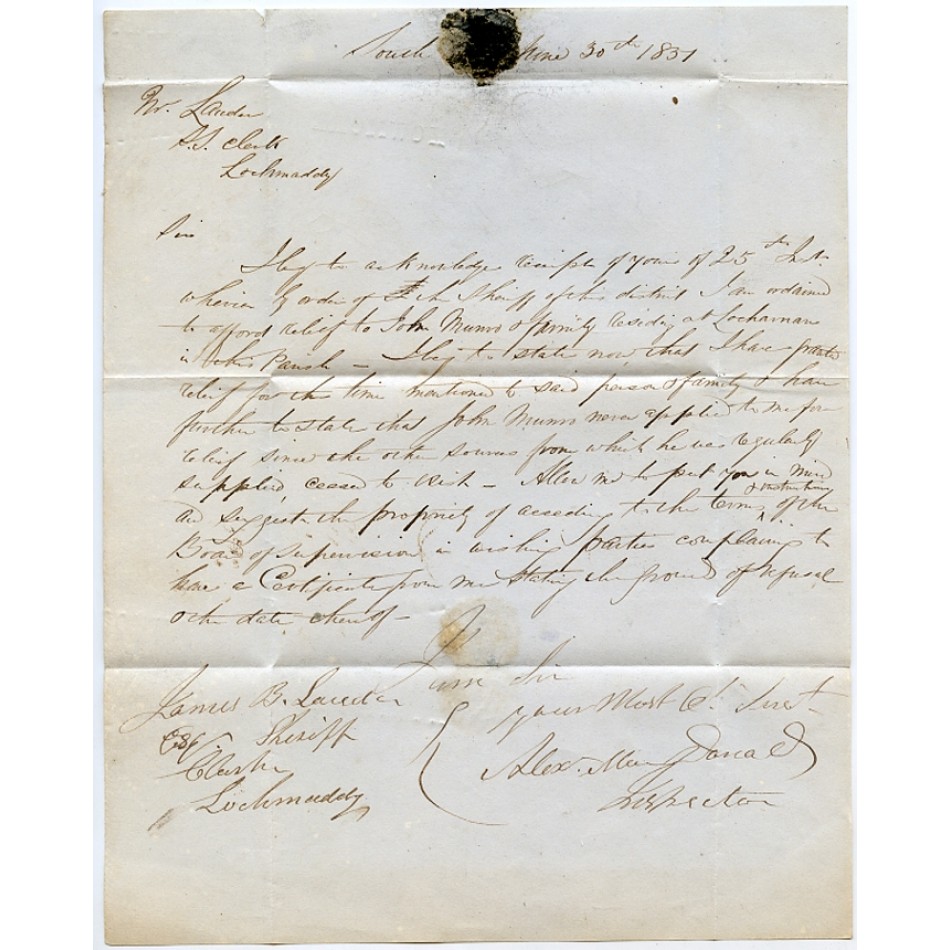 South June 30th 1851
Mr. Lauder
S.S. Clerk
Lochmaddy
Sir
I beg to acknowledge receipt of yours of 25th Inst.
wherein by order of the Sheriff of this district I am ordained
to afford relief to John Munro & family residing at
in this Parish - I beg to state now that I have granted
relief for the time mentioned to said person & family & have
further to state that John Munro never applied to me for
relief since the other sources from which he was regularly
supplied, ceased to exist - Allow me to put you in mind
and suggest the propriety of acceding to the terms & instructions of the
Board of Supervision in wishing parties complaining to
have a Certificate from me stating the ground of refusal
& the date thereof -
I am Sir
your Most Ob. Servt.
James B. Lauder
Esq. Sheriff
Clerk
Lochmaddy
Alex. MacDonald
Inspector